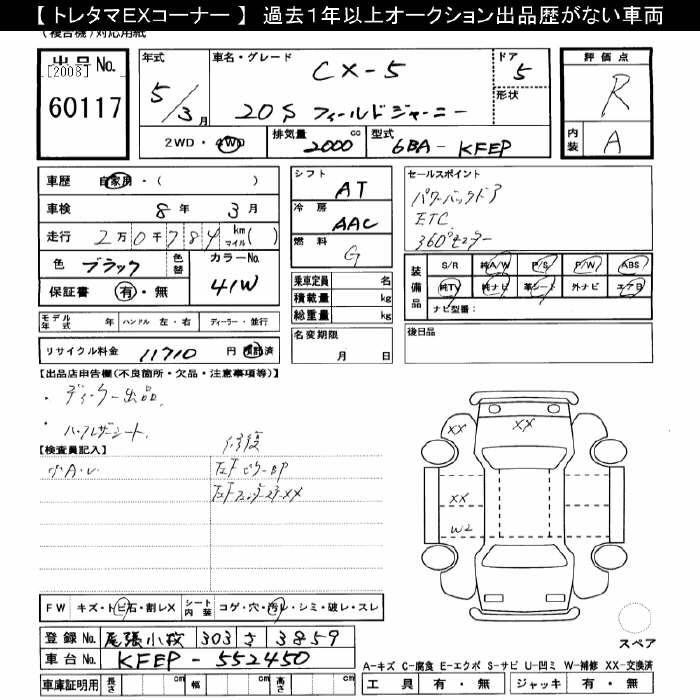 【 トレタマEXコーナー 】 過去1年以上オークション出品歴がない車両
(複合機)対応用紙
出品No.
[2008]
60117
年式
5/3月
車名・グレード
CX-5
20S フィールドジャーニー
ドア
5
形状
2WD・4WD
排気量 2000 cc
型式 6BA- KFEP
評価点
R
内装
A
車歴 自家用・( )
車検 8年 3月
走行 2万0千784 km マイル( )
色 ブラック 色替
カラーNo. 41W
保証書 有・無
モデル年式 年 ハンドル 左・右 ディーラー・並行
リサイクル料金 11710 円 預託済
シフト AT
冷房 AAC
燃料 G
乗車定員 名
積載量 kg
総重量 kg
名変期限
月 日
セールスポイント
パワーバックドア
ETC
360°モニター
装備品
S/R 純A/W P/S P/W ABS
純TV 純ナビ 革シート 外ナビ エアB
ナビ型番:
後日品
【出品店申告欄(不良箇所・欠品・注意事項等)】
・ ディーラー出品
・ ハーフレザーシート
【検査員記入】
小A・U
修復
FW キズ・トビ石・割レX シート内装 コゲ・穴・汚レ・シミ・破レ・スレ
登録No. 尾張小牧 303 さ 3859
車台No. KFEP - 552450
車庫証明用 長さ cm 幅 cm 高さ cm
XX
XX
XX
W2
スペア
A-キズ C-腐食 E-エクボ S-サビ U-凹ミ W-補修 XX-交換済
工具 有・無 ジャッキ 有・無